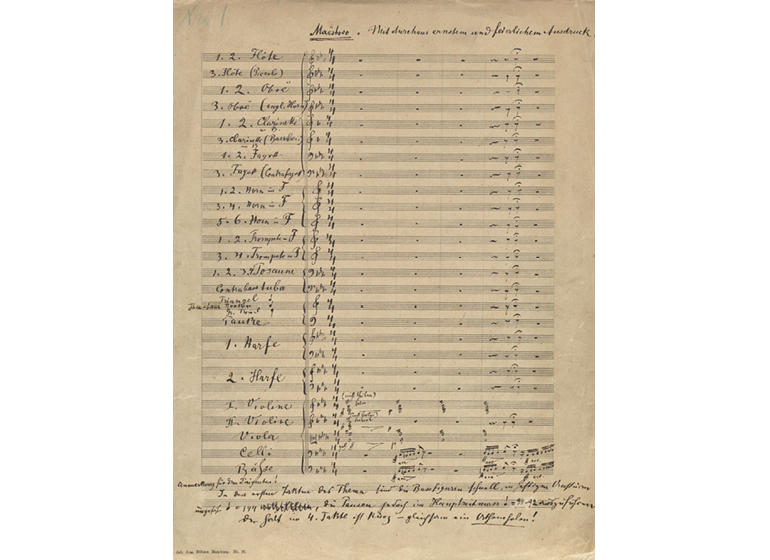 No 1
Maëstoso. Mit durchaus ernstem und feierlichem Ausdruck
1. 2. Flöte
3. Flöte (Piccolo)
1. 2. Oboë
3. Oboë (engl. Horn)
1. 2. Clarinette
3. Clarinette
1. 2. Fagott
3. Fagott (Contrafagott)
1. 2. Horn in F
3. 4. Horn in F
5. 6. Horn in F
1. 2. Trompete in F
3. 4. Trompete in F
1. 2. 3. Posaune
Contrabasstuba
Triangel
Pauke
1. Harfe
2. Harfe
I. Violine
II. Violine
Viola
Celli
Bässe
Anmerkung für den Dirigenten!
In den ersten Takten des Themas sind die Bassfiguren schnell, in heftigem Ansturm
ungefähr = 144, die Pausen jedoch im Hauptzeitmass auszuführen
Der Halt im 4. Takte ist kurz – gleichsam ein Ausholen!